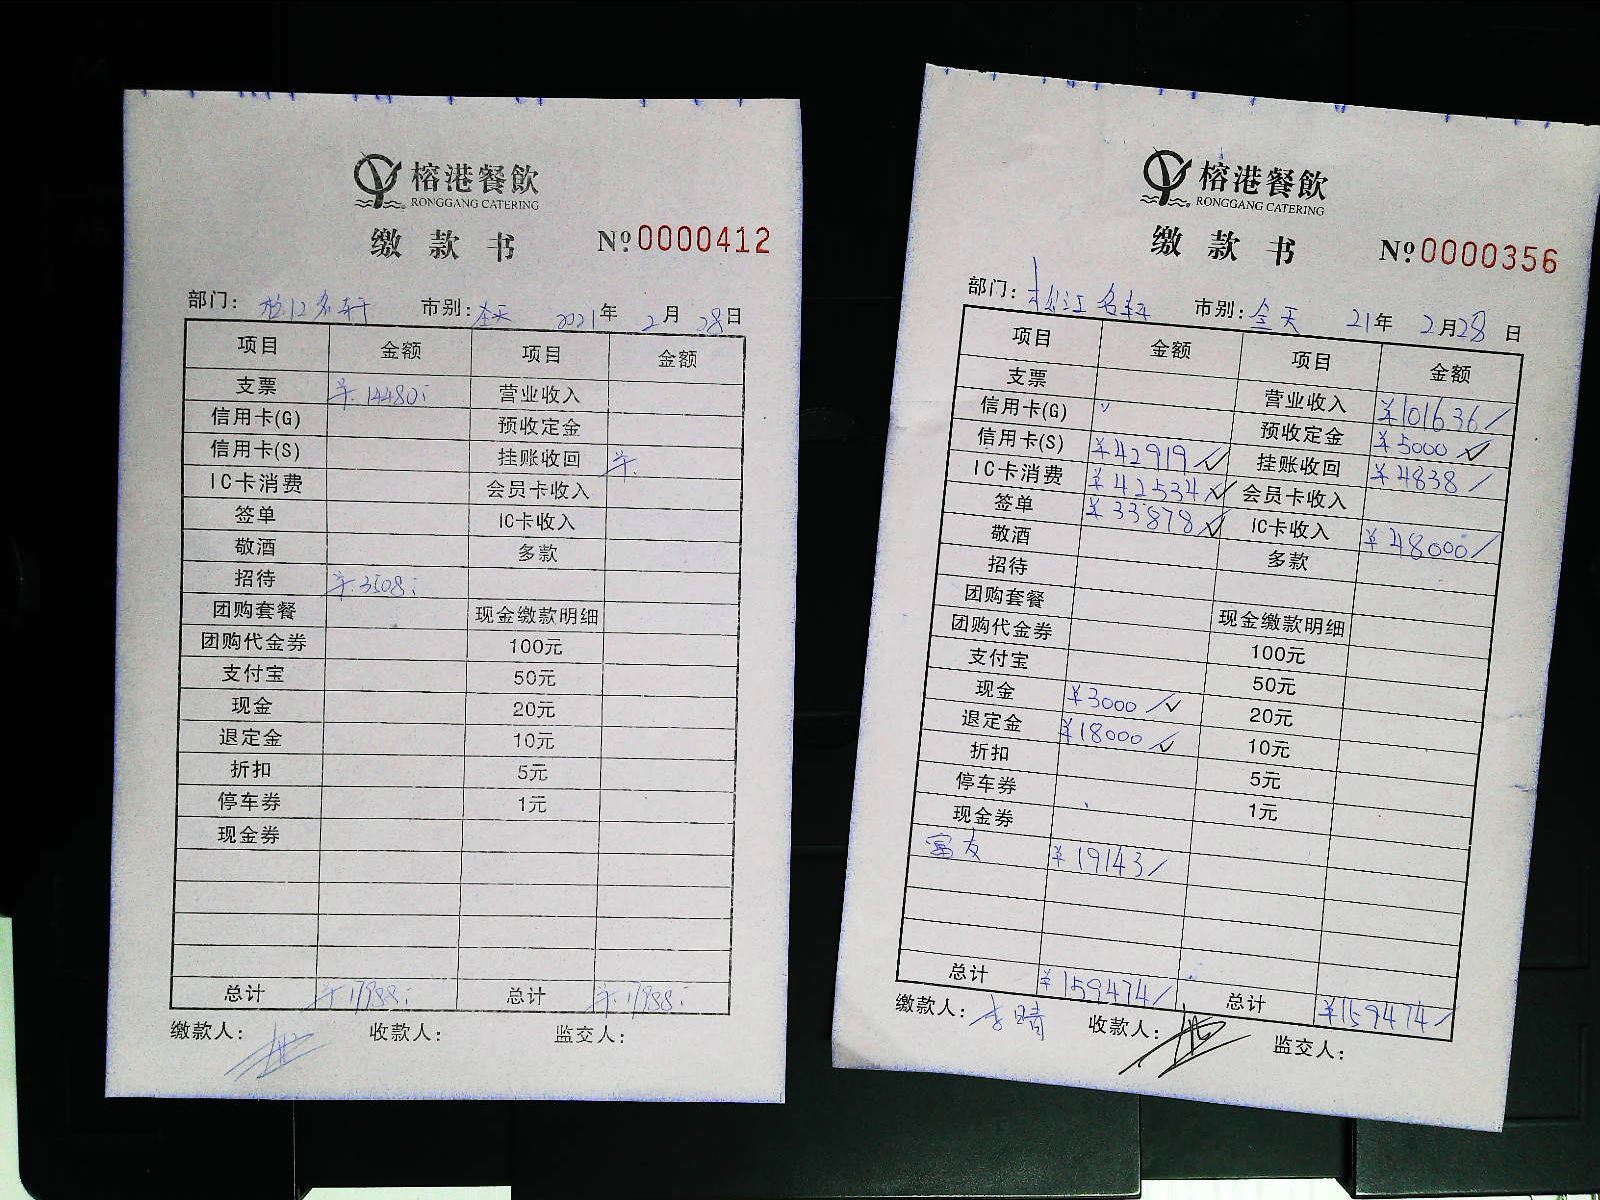 榕港餐飲
RONGGANG CATERING
缴款书 №0000412
部门: 松江名轩 市别: 全天 2021年 2月 28日
项目 金额 项目 金额
支票 ¥14480 营业收入
信用卡(G) 预收定金
信用卡(S) 挂账收回 ¥
IC卡消费 会员卡收入
签单 IC卡收入
敬酒 多款
招待 ¥3508
团购套餐 现金缴款明细
团购代金券 100元
支付宝 50元
现金 20元
退定金 10元
折扣 5元
停车券 1元
现金券
总计 ¥17988 总计 ¥17988
缴款人: 收款人: 监交人:
榕港餐飲
RONGGANG CATERING
缴款书 №0000356
部门: 松江名轩 市别: 全天 21年 2月28日
项目 金额 项目 金额
支票 营业收入 ¥101636/
信用卡(G) 预收定金 ¥5000 ✓
信用卡(S) ¥42919/✓ 挂账收回 ¥4838/
IC卡消费 ¥42534/✓ 会员卡收入
签单 ¥33878/✓ IC卡收入 ¥48000/
敬酒 多款
招待
团购套餐 现金缴款明细
团购代金券 100元
支付宝 50元
现金 ¥3000/✓ 20元
退定金 ¥18000/✓ 10元
折扣 5元
停车券 1元
现金券
富友 ¥19143/
总计 ¥159474/ 总计 ¥159474/
缴款人: 李晴 收款人: 监交人: